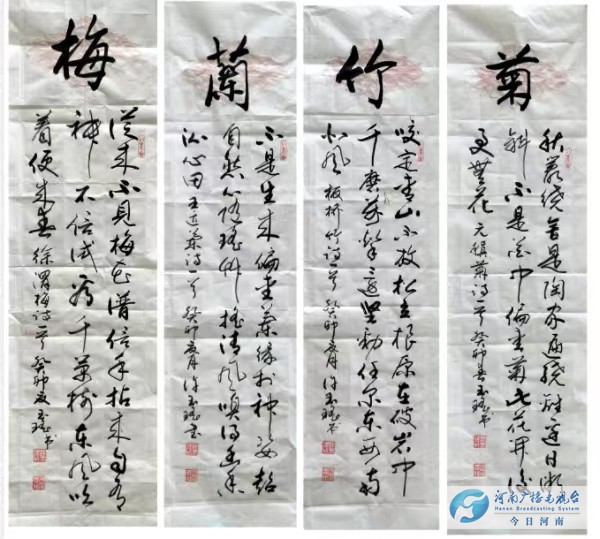 梅
從来不見梅花譜信手拈来自有
神不信试看千萬树东风吹
着便成春 徐渭梅诗一首 癸卯夏
蘭
不是生来偏爱兰缘于神姿超
自然心随瑶草摇清风嗅得幽香
沁心田 兰诗一首 癸卯夏月
竹
咬定青山不放松立根原在破岩中
千磨萬擊還坚劲任尔东西南
北风 板桥竹诗一首 癸卯夏月
菊
秋丛绕舍是陶家遍绕籬邊日漸
斜不是花中偏爱菊此花开後
更無花 元稹菊诗一首 癸卯春
河南广播电视台
Henan Broadcasting System
今日河南